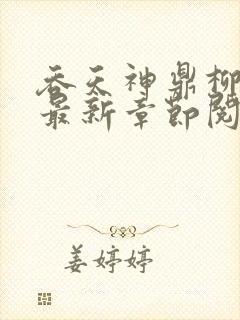 吞天神鼎柳
最新章节阅
姜婷婷